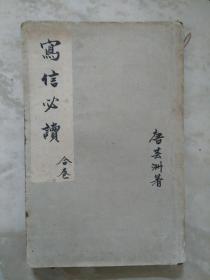 寫信必讀
合卷
唐芸洲著